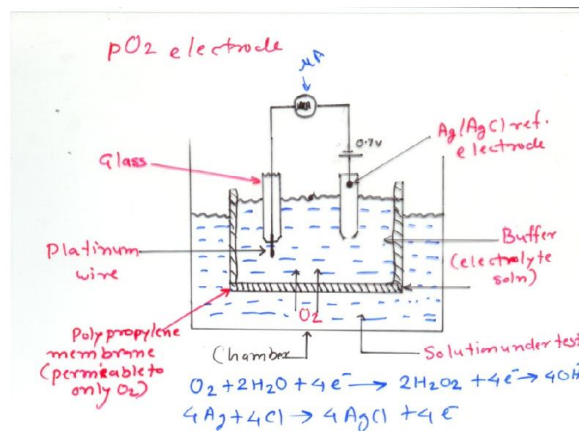 pO2 electrode
μA
0.7V
Ag/AgCl ref.
electrode
Glass
Platinum
wire
Buffer
(electrolyte
soln)
O2
Polypropylene
membrane
(permeable to
only O2)
Chamber
Solution under test
O2 + 2H2O + 4e⁻ → 2H2O2 + 4e⁻ → 4OH
4Ag + 4Cl → 4AgCl + 4e